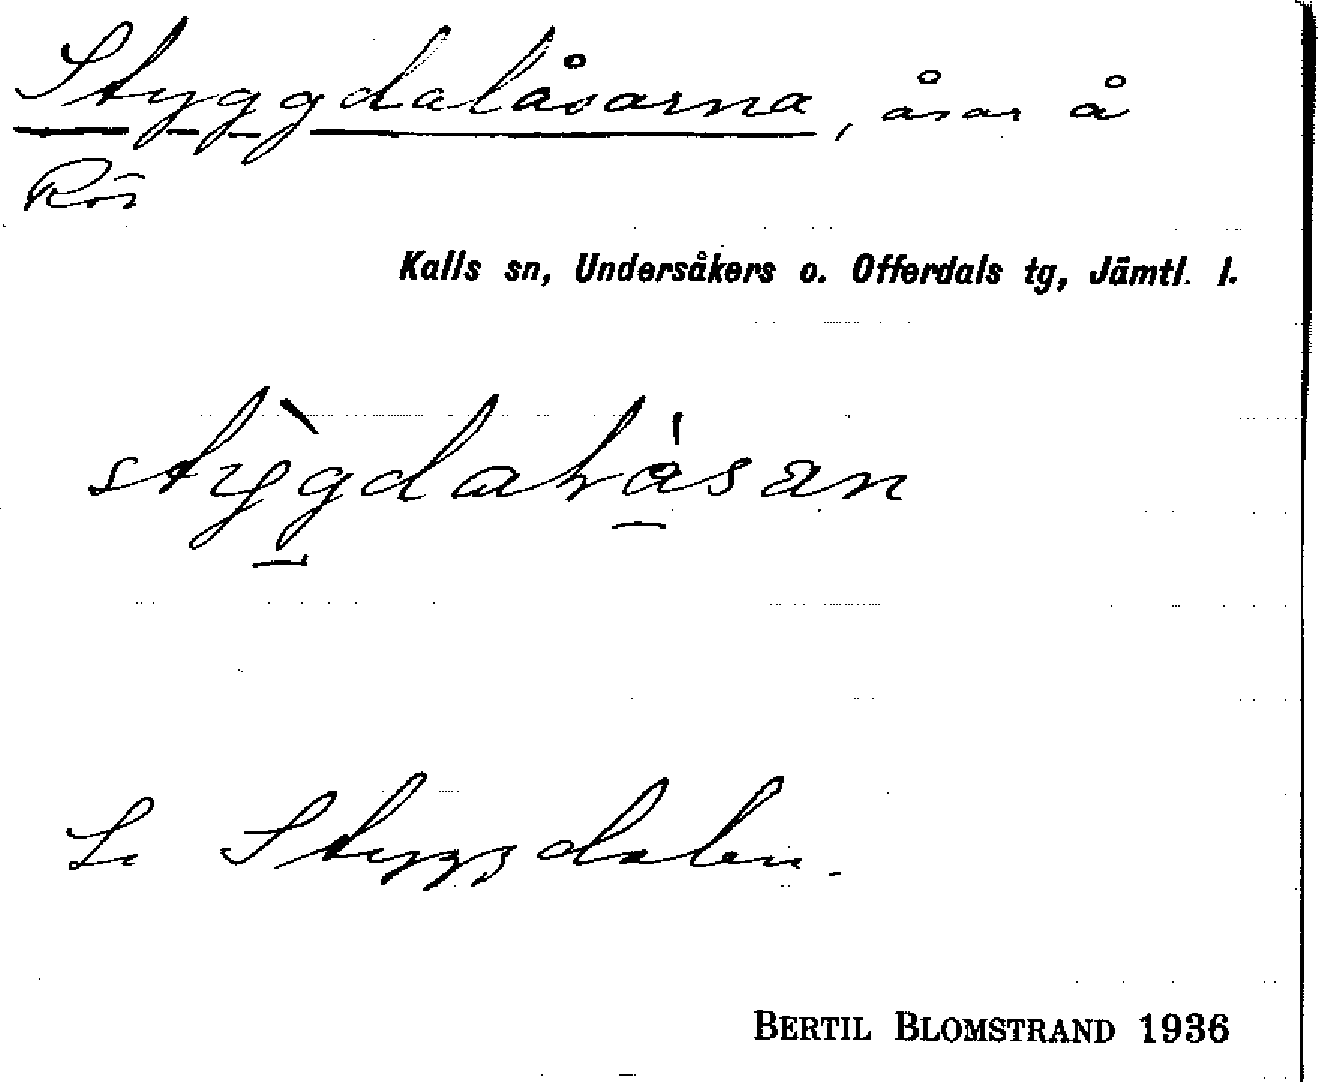 Styggdalåsarna, åsar å
Rör
Kalls sn, Undersåkers o. Offerdals tg, Jämtl. l.
Se Styggdalen.
BERTIL BLOMSTRAND 1936